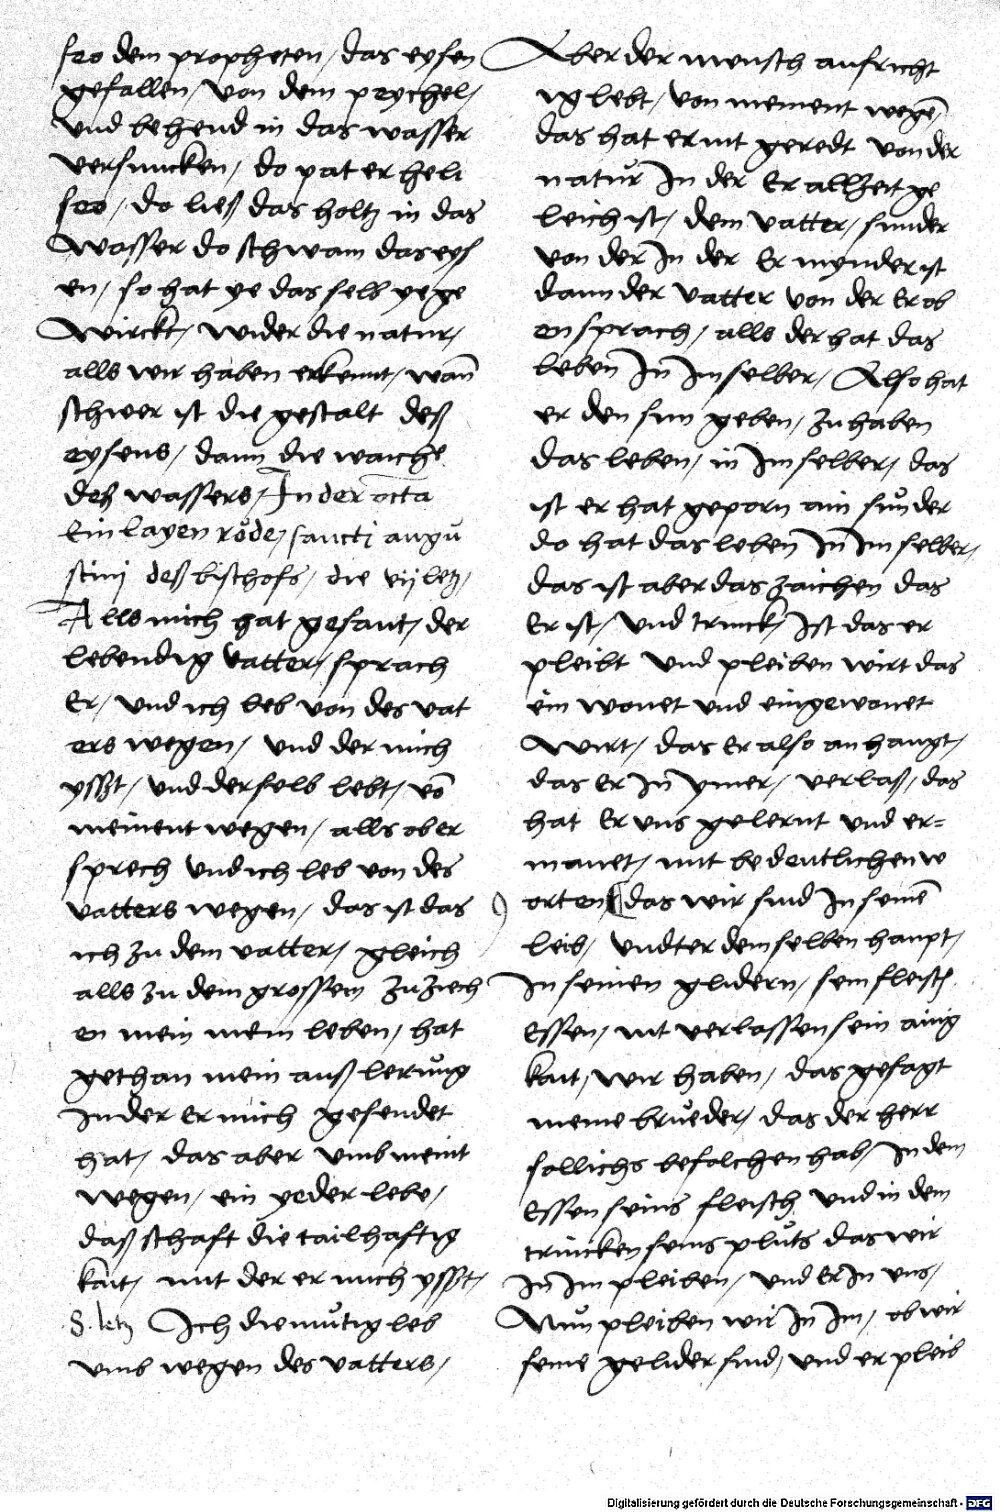 seo dem propheten / das eysen
gefallen / von dem peychel /
vnd behend in das wasser
versuncken / do pat er heli
seo / do ließ das holtz in das
wasser do schwam das eys
en / so hat ye das selb yege
wirckt / wider die natur /
alls wir haben erkennt / wan̄
schwer ist die gestalt deß
eysens / dann die waiche
deß wassers / In der octa
Ein layen röde / sancti augu
stini deß bischofs / die vij letz /
Alls mich hat gesant / der
lebendig vatter / sprach
Er / vnd ich leb von des vat
ers wegen / vnd der mich
ysszt / vnd der selb lebt / vō
meinent wegen / alls ob er
sprech vnd ich leb von des
vatters wegen / das ist das
ich zu dem vatter / gleich
alls zu dem grossem zuziech
en mein mein leben / hat
gethan mein auß lerung
In der Er mich gesendet
hat / das aber vmb meint
wegen / ein yeder lebe /
daß schaft die tailhaftig
kait / mit der er mich ysszt /
8. letz Ich diemůtig leb
vmb wegen des vatters /
Aber der mensch aufricht
ig lebt / von mement wegē
das hat er nit geredt von der
natur In der Er allzeit ge
leich ist / dem vatter / sunder
von der In der Er mynder ist
dann der vatter von der Er ob
en sprach / alls der hat das
leben In Im selber / Also hat
er den sun geben / zu haben
das leben / in Im selber / das
ist er hat geporn ain sun der
do hat das leben In Im selber /
das ist aber das zaichen das
Er ist / vnd trinck / Ist das er
pleibt vnd pleiben wirt das
ein wonet vnd eingewonet
wirt / das Er also an hangt /
das Er In ymer / verlaß / das
hat Er vns gelernt vnd er=
manet / mit bedeutlichen w
orten / das wir sind In seinē
leib / vndter dem selben haupt /
In seinen glidern / sein fleisch /
Essen / nit verlassen sein ainig
kait / wir haben / das gesagt
meine brueder / das der herr
sollichs befolchen hab / In dem
Essen seins fleisch vnd in dem
trincken seins pluts das wir
In Im pleiben / vnd Er In vns /
Nun pleiben wir In Im / ob wir
seine gelider sind / vnd er pleib
Digitalisierung gefördert durch die Deutsche Forschungsgemeinschaft - DFG